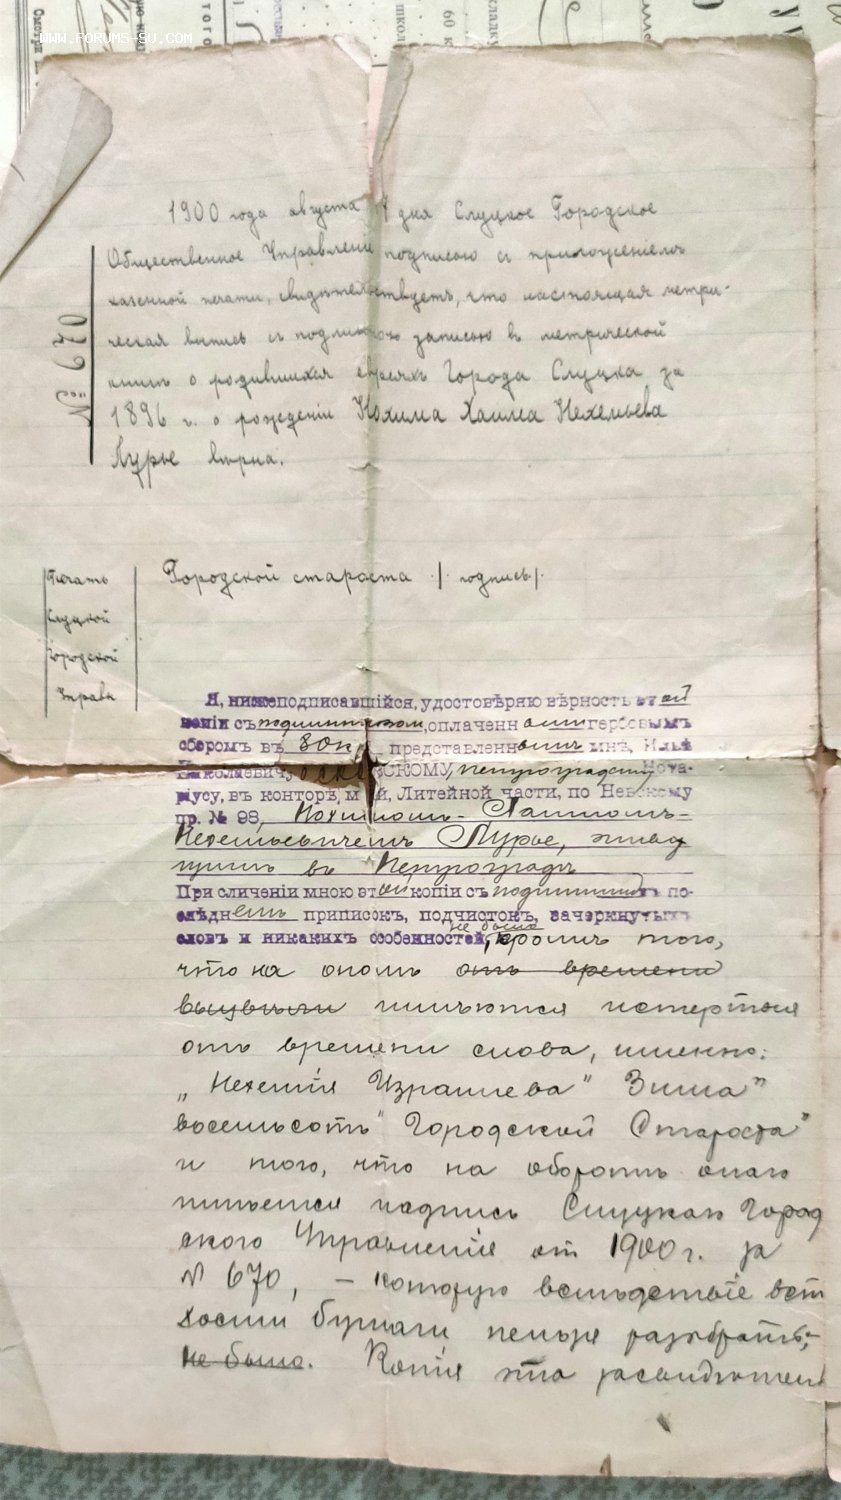 www.FORUMS-SU.com
1900 года августа 1 дня Слуцкое Городское
Общественное Управленіе подписою съ приложеніемъ
казенной печати, свидѣтельствуетъ, что настоящая метри-
ческая выпись съ подлинною записью въ метрической
книгѣ о родившихся евреяхъ Города Слуцка за
1896 г. о рожденіи Нохима Хаима Нехемьева
Лурье вѣрна.
№ 670
Печать
Слуцкой
Городской
Управы
Городской староста /подпись/.
Я, нижеподписавшійся, удостовѣряю вѣрность этой
копіи съ подлинникомъ, оплаченнымъ гербовымъ
сборомъ въ 80 к., представленнымъ мнѣ, Ильѣ
Николаевичу СКОМУ, петроградскому Нота-
ріусу, въ конторѣ моей, Литейной части, по Невскому
пр. № 98, Нохимомъ-Хаимомъ-
Нехемьевичемъ Лурье, живу
щимъ въ Петроградѣ
При сличеніи мною этой копіи съ подлинникомъ въ по-
слѣднемъ приписокъ, подчистокъ, зачеркнутыхъ
словъ и никакихъ особенностей, не было кромѣ того,
что на ономъ отъ времени
имѣются истертыя
отъ времени слова, именно:
„Нехемія Израилева" Зима"
восемьсотъ" Городской Староста"
и того, что на оборотѣ онаго
имѣется надпись Слуцкаго Город
ского Управленія от 1900 г. за
№ 670, — которую вслѣдствіе вет
хости бумаги нельзя разобрать,-
не было. Копія эта